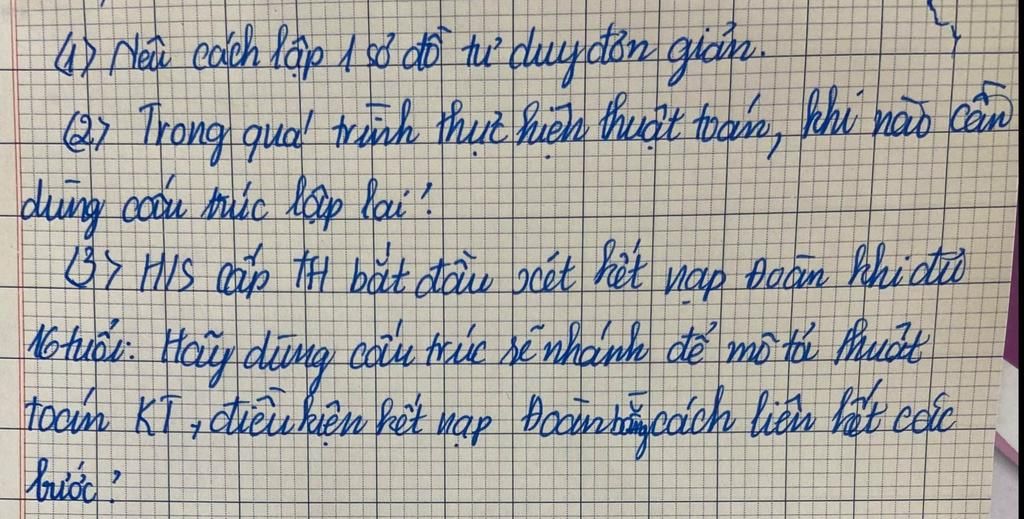 (1) Nêu cách lập 1 sơ đồ tư duy đơn giản.
(2) Trong quá trình thực hiện thuật toán, khi nào cần
dùng cấu trúc lặp lại?
(3) H/S cấp TH bắt đầu xét kết nạp Đoàn khi đủ
16 tuổi: Hãy dùng cấu trúc rẽ nhánh để mô tả thuật
toán KT, điều kiện kết nạp Đoàn bằng cách liên kết các
bước?